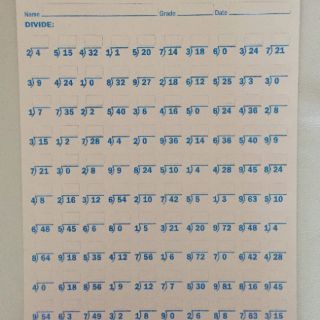 Name Grade Date
DIVIDE:
2)4 5)15 4)32 1)1 5)20 7)14 3)18 6)0 3)24 7)21
3)9 4)24 1)0 8)32 9)27 2)18 2)12 5)25 3)3 3)0
1)7 7)35 2)2 5)40 3)6 4)16 5)0 6)24 4)36 2)8
3)15 1)2 7)28 4)4 2)0 9)36 2)14
7)21 3)0 8)8 9)9 8)24 5)10
4)8 2)16 3)12 6)54 2)10 7)42 5)5
6)48 5)45 6)6 8)0 1)5 3)21 4)20 9)72 8)48 1)4
8)64 9)18 5)35 4)12 7)56 1)6 8)72 7)0 6)42 4)28
4)0 8)16 8)56 1)9 2)12 7)7 5)30 9)81 8)16 9)45
9)54 6)3 7)49 3)2 1)8 9)0 2)6 8)8 7)63 3)15